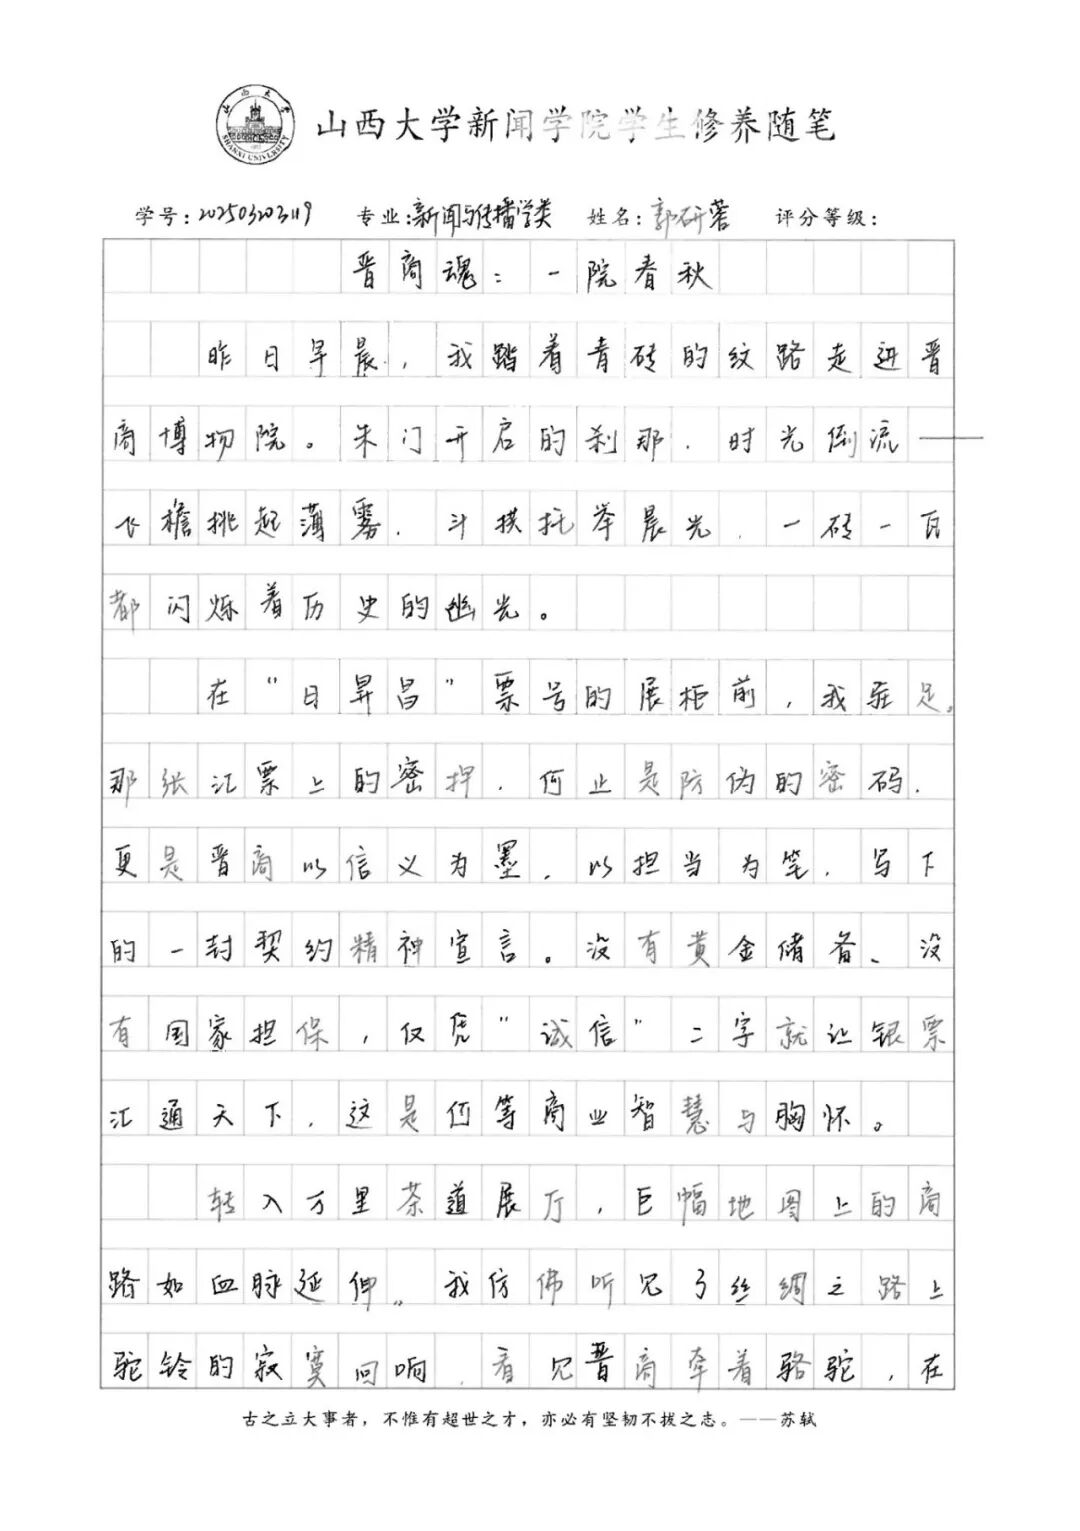 山西大学
SHANXI UNIVERSITY
山西大学新闻学院学生修养随笔
学号：202503203119 专业：新闻与传播学类 姓名：郭研蓉 评分等级：
晋商魂：一院春秋
昨日早晨，我踏着青砖的纹路走进晋
商博物院。朱门开启的刹那，时光倒流——
飞檐挑起薄雾，斗拱托举晨光，一砖一瓦
都闪烁着历史的幽光。
在“日昇昌”票号的展柜前，我驻足。
那张汇票上的密押，何止是防伪的密码，
更是晋商以信义为墨，以担当为笔，写下
的一封契约精神宣言。没有黄金储备、没
有国家担保，仅凭“诚信”二字就让银票
汇通天下，这是何等商业智慧与胸怀。
转入万里茶道展厅，巨幅地图上的商
路如血脉延伸。我仿佛听见了丝绸之路上
驼铃的寂寞回响，看见晋商牵着骆驼，在
古之立大事者，不惟有超世之才，亦必有坚韧不拔之志。——苏轼